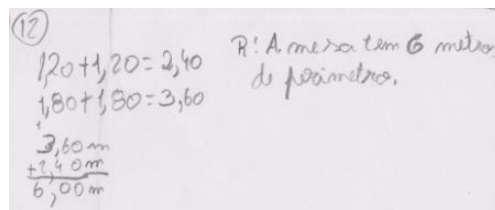 12
1,20+1,20=2,40
1,80+1,80=3,60
1
3,60m
+2,40m
6,00m
R: A mesa tem 6 metros
de perímetro.